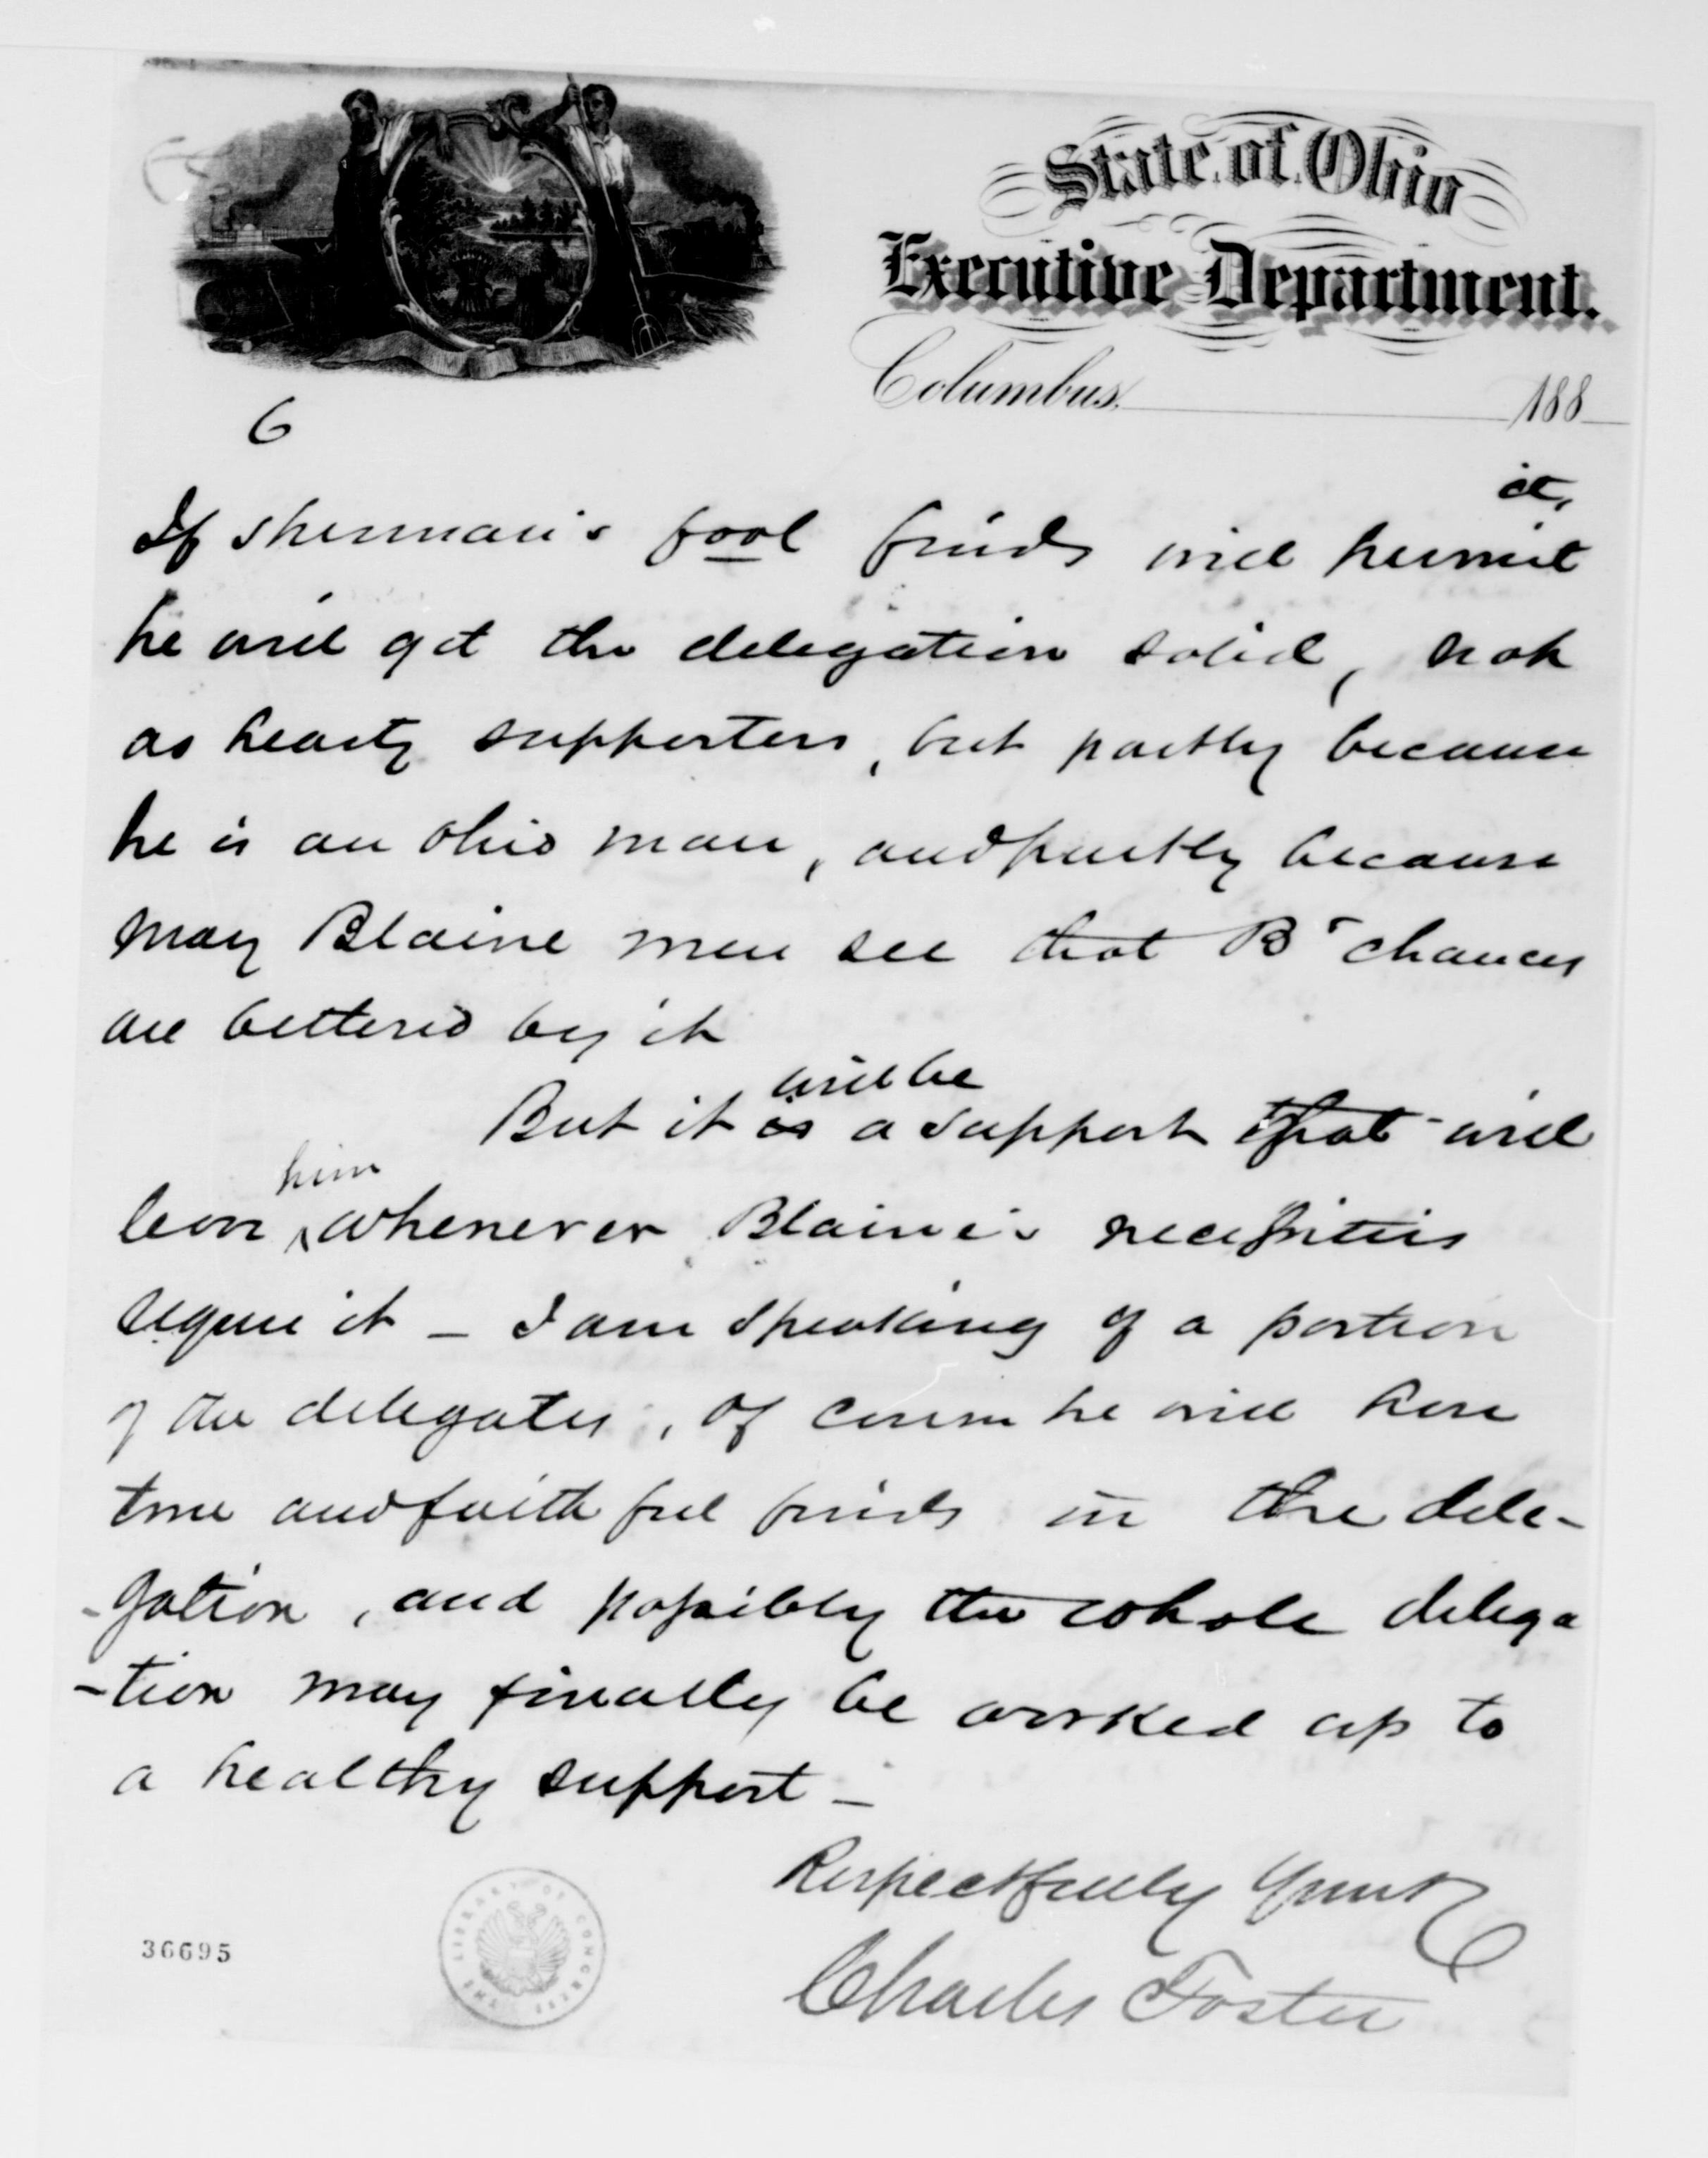 State of Ohio
Executive Department.
Columbus, 188
6
If Sherman's fool friends will permit it,
he will get the delegation solid, not
as hearty supporters, but partly because
he is an Ohio man, and partly because
many Blaine men see that B's chances
are bettered by it
But it is will be a support that will
leave him whenever Blaine's necessities
require it - I am speaking of a portion
of the delegates, of course he will have
true and faithful friends in the dele-
-gation, and possibly the whole delega
-tion may finally be worked up to
a healthy support -
Respectfully Yours
Charles Foster
36695
THE LIBRARY OF CONGRESS